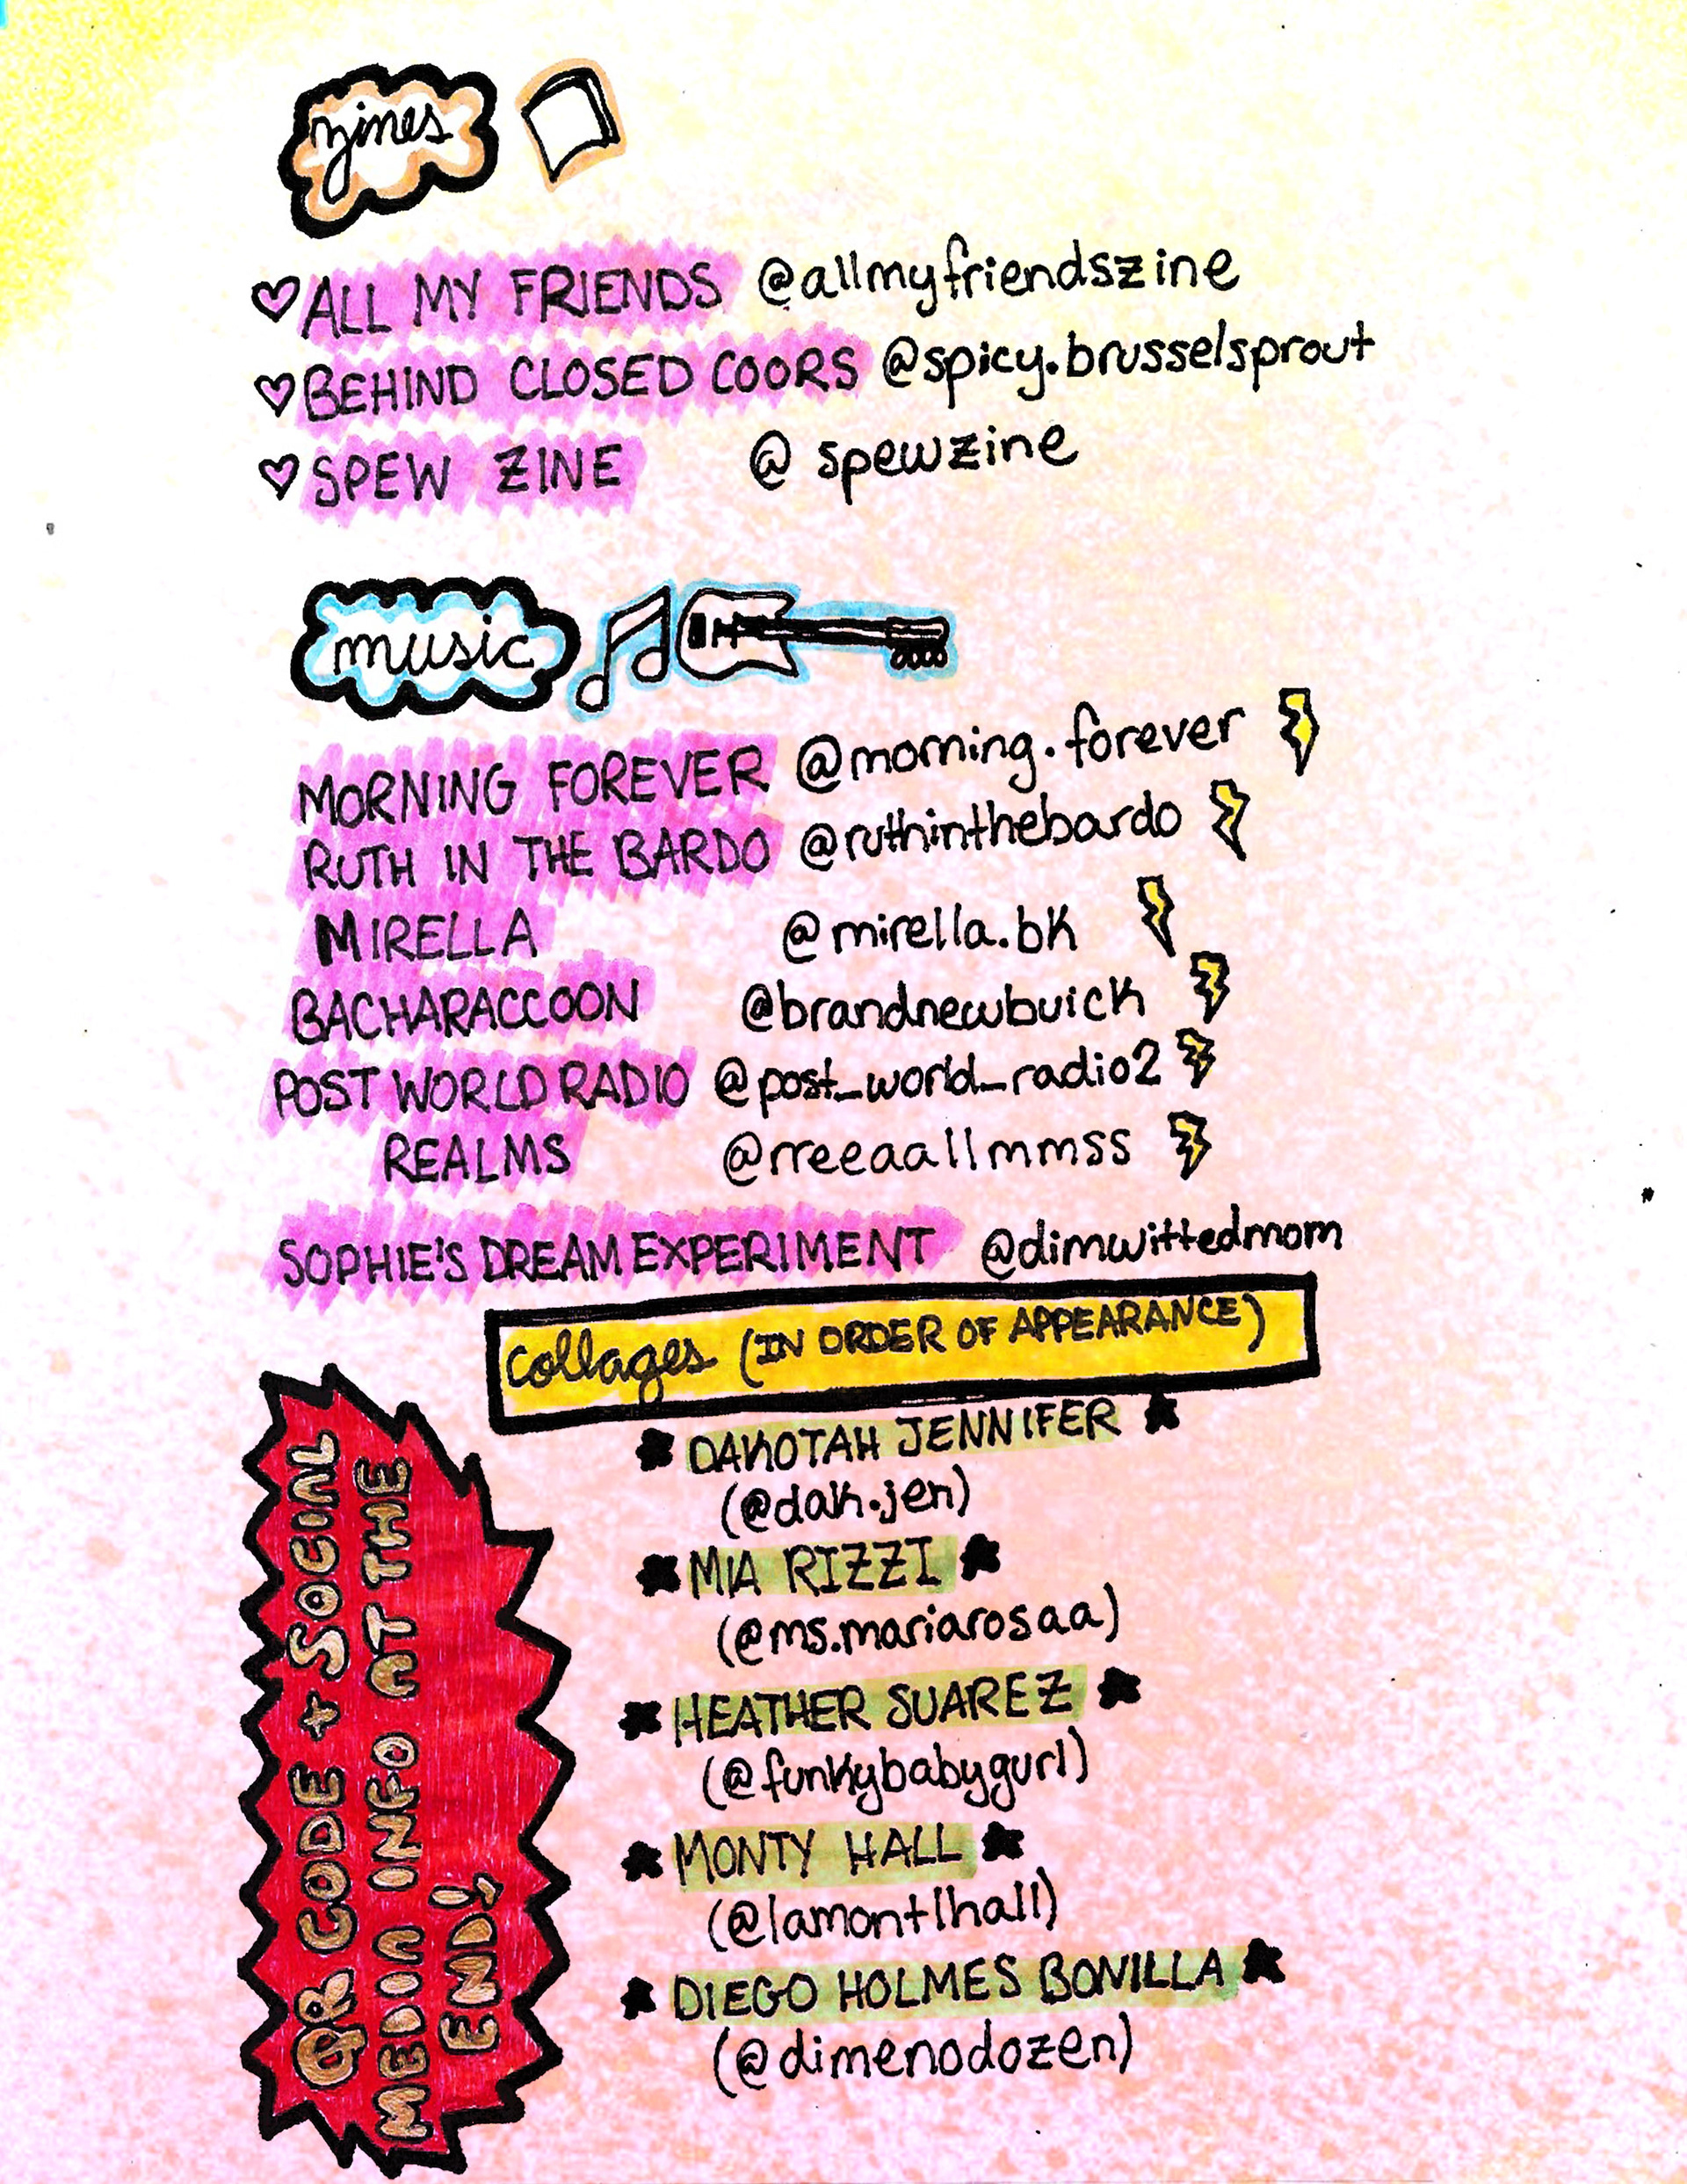 zines
ALL MY FRIENDS @allmyfriendszine
BEHIND CLOSED COORS @spicy.brusselsprout
SPEW ZINE @ spewzine
music
MORNING FOREVER @morning.forever
RUTH IN THE BARDO @ruthinthebardo
MIRELLA @mirella.bk
BACHARACCOON @brandnewbuick
POST WORLD RADIO @post_world_radio2
REALMS @rreeaallmmss
SOPHIE'S DREAM EXPERIMENT @dimwittedmom
collages (IN ORDER OF APPEARANCE)
DAKOTAH JENNIFER
(@dak.jen)
MIA RIZZI
(@ms.mariarosaa)
HEATHER SUAREZ
(@funkybabygurl)
MONTY HALL
(@lamontlhall)
DIEGO HOLMES BONILLA
(@dimenodozen)
QR CODE + SOCIAL
MEDIA INFO AT THE
END!